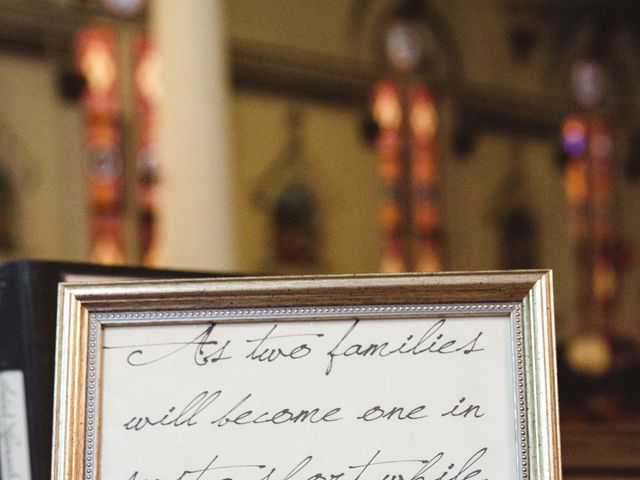 As two families
will become one in
just a short while